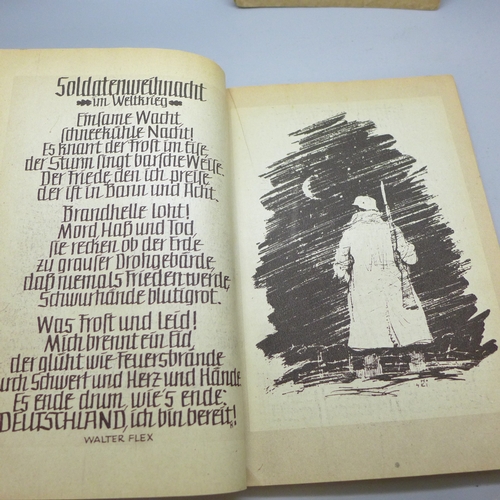 Soldatenweihnacht
im Weltkrieg
Einsame Wacht,
schneekühle Nacht!
Es knarrt der Frost im Eise,
der Sturm singt barsche Weise.
Der Friede, den ich preise,
der ist in Bann und Acht.
Brandhelle loht!
Mord, Haß und Tod,
sie recken ob der Erde
zu grauser Drohgebärde,
daß niemals Frieden werde,
Schwurhände blutigrot.
Was Frost und Leid!
Mich brennt ein Eid,
der glüht wie Feuersbrände
urch Schwert und Herz und Hände
Es ende drum, wie's ende:
DEUTSCHLAND, ich bin bereit!
WALTER FLEX